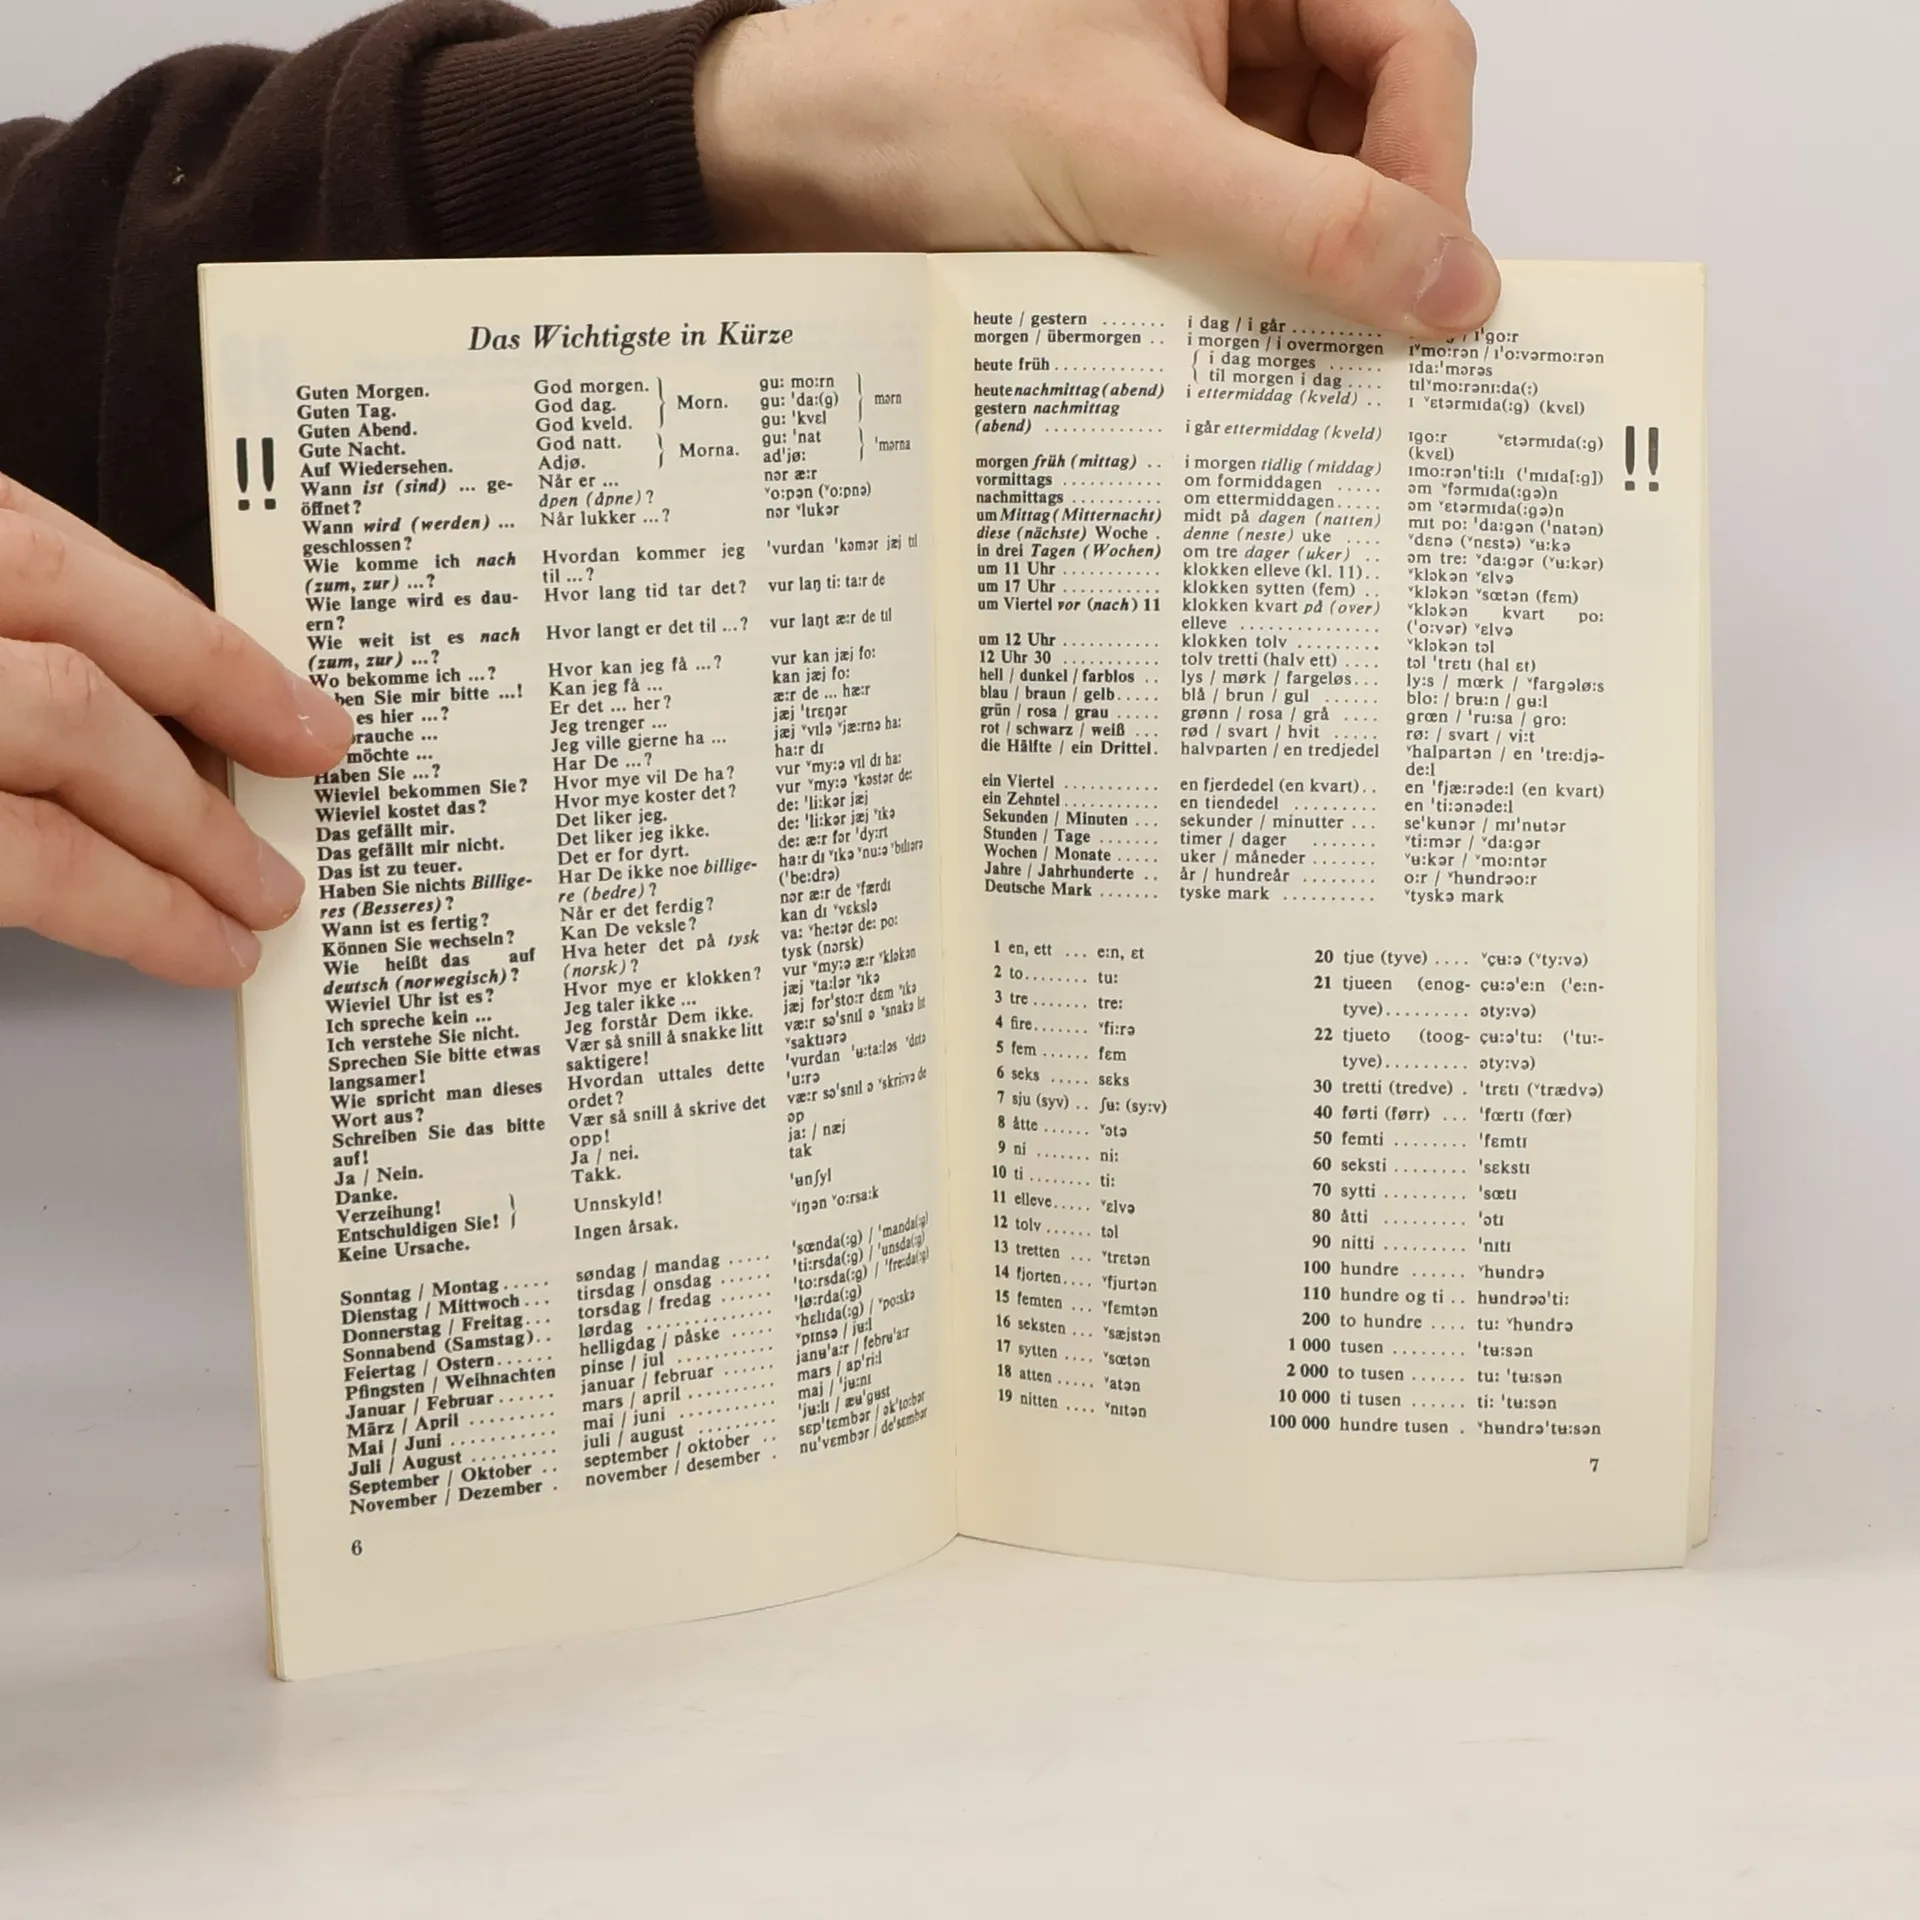 Das Wichtigste in Kürze
!!
Guten Morgen. God morgen. gu: mo:rn
Guten Tag. God dag. Morn. gu: 'da:(g) mərn
Guten Abend. God kveld. gu: 'kvɛl
Gute Nacht. God natt. Morna. gu: 'nat 'mərna
Auf Wiedersehen. Adjø. ad'jø:
Wann ist (sind) ... ge- Når er ... nər æ:r
öffnet? åpen (åpne)? ˅o:pən (˅o:pnə)
Wann wird (werden) ... Når lukker ...? nər ˅lukər
geschlossen?
Wie komme ich nach Hvordan kommer jeg 'vurdan 'kəmər jæj til
(zum, zur) ...? til ...?
Wie lange wird es dau- Hvor lang tid tar det? vur laŋ ti: ta:r de
ern?
Wie weit ist es nach Hvor langt er det til ...? vur laŋt æ:r de til
(zum, zur) ...?
Wo bekomme ich ...? Hvor kan jeg få ...? vur kan jæj fo:
ben Sie mir bitte ...! Kan jeg få ... kan jæj fo:
es hier ...? Er det ... her? æ:r de ... hæ:r
rauche ... Jeg trenger ... jæj 'trɛŋər
möchte ... Jeg ville gjerne ha ... jæj ˅vɪlə ˅jæ:rnə ha:
Haben Sie ...? Har De ...? ha:r dɪ
Wieviel bekommen Sie? Hvor mye vil De ha? vur ˅my:ə vɪl dɪ ha:
Wieviel kostet das? Hvor mye koster det? vur ˅my:ə ˅kəstər de:
Das gefällt mir. Det liker jeg. de: 'li:kər jæj
Das gefällt mir nicht. Det liker jeg ikke. de: 'li:kər jæj ˅ɪkə
Das ist zu teuer. Det er for dyrt. de: æ:r fər 'dy:rt
Haben Sie nichts Billige- Har De ikke noe billige- ha:r dɪ ˅ɪkə ˅nu:ə ˅bɪlɪərə
res (Besseres)? re (bedre)? ('be:drə)
Wann ist es fertig? Når er det ferdig? nər æ:r de ˅færdɪ
Können Sie wechseln? Kan De veksle? kan dɪ ˅vɛkslə
Wie heißt das auf Hva heter det på tysk va: ˅he:tər de: po:
deutsch (norwegisch)? (norsk)? tysk (nərsk)
Wieviel Uhr ist es? Hvor mye er klokken? vur ˅my:ə æ:r ˅kləkən
Ich spreche kein ... Jeg taler ikke ... jæj ˅ta:lər ˅ɪkə
Ich verstehe Sie nicht. Jeg forstår Dem ikke. jæj fər'sto:r dɛm ˅ɪkə
Sprechen Sie bitte etwas Vær så snill å snakke litt væ:r sə'snɪl ə ˅snakə lɪt
langsamer! saktigere! ˅saktɪərə
Wie spricht man dieses Hvordan uttales dette 'vurdan 'ʉ:ta:ləs ˅dɛtə
Wort aus? ordet? 'u:rə
Schreiben Sie das bitte Vær så snill å skrive det væ:r sə'snɪl ə ˅skri:və de
auf! opp! əp
Ja / Nein. Ja / nei. ja: / næj
Danke. Takk. tak
Verzeihung! Unnskyld! 'ʉnʃyl
Entschuldigen Sie!
Keine Ursache. Ingen årsak. ˅ɪŋən ˅o:rsa:k
Sonntag / Montag ..... søndag / mandag ..... 'sœnda(:g) / 'manda(:g)
Dienstag / Mittwoch ... tirsdag / onsdag ...... 'ti:rsda(:g) / 'unsda(:g)
Donnerstag / Freitag ... torsdag / fredag ....... 'to:rsda(:g) / 'fre:da(:g)
Sonnabend (Samstag) .. lørdag ............ 'lø:rda(:g)
Feiertag / Ostern ...... helligdag / påske ..... ˅hɛlɪda(:g) / ˅po:skə
Pfingsten / Weihnachten pinse / jul .......... ˅pɪnsə / jʉ:l
Januar / Februar ...... januar / februar ...... janʉ'a:r / febrʉ'a:r
März / April ......... mars / april .......... mars / ap'ri:l
Mai / Juni ........... mai / juni ........... maj / 'jʉ:nɪ
Juli / August ........ juli / august ........ 'jʉ:lɪ / æʉ'gʉst
September / Oktober .. september / oktober .. sɛp'tɛmbər / ək'to:bər
November / Dezember . november / desember . nu'vɛmbər / de'sɛmbər
6
heute / gestern ....... i dag / i går .......... / ɪ'go:r
morgen / übermorgen .. i morgen / i overmorgen ɪ˅mo:rən / ɪ'o:vərmo:rən
heute früh ............ i dag morges ...... ɪda:'mərəs
til morgen i dag .... tɪl˅mo:rənɪ:da(:)
heute nachmittag (abend) i ettermiddag (kveld) .. ɪ ˅ɛtərmɪda(:g) (kvɛl)
gestern nachmittag
(abend) ............. i går ettermiddag (kveld) ɪgo:r ˅ɛtərmɪda(:g)
(kvɛl)
morgen früh (mittag) .. i morgen tidlig (middag) ɪmo:rən'ti:lɪ ('mɪda[:g])
vormittags .......... om formiddagen ..... əm ˅fərmɪda(:gə)n
nachmittags .......... om ettermiddagen ..... əm ˅ɛtərmɪda(:gə)n
um Mittag (Mitternacht) midt på dagen (natten) mɪt po: 'da:gən ('natən)
diese (nächste) Woche . denne (neste) uke .... ˅dɛnə (˅nɛstə) ˅ʉ:kə
in drei Tagen (Wochen) om tre dager (uker) .. əm tre: ˅da:gər (˅ʉ:kər)
um 11 Uhr ........... klokken elleve (kl. 11) .. ˅kləkən ˅ɛlvə
um 17 Uhr ........... klokken sytten (fem) .. ˅kləkən ˅sœtən (fɛm)
um Viertel vor (nach) 11 klokken kvart på (over) ˅kləkən kvart po:
elleve ............... ('o:vər) ˅ɛlvə
um 12 Uhr ........... klokken tolv ......... ˅kləkən təl
12 Uhr 30 ........... tolv tretti (halv ett) .... təl 'trɛtɪ (hal ɛt)
hell / dunkel / farblos .. lys / mørk / fargeløs ... ly:s / mœrk / ˅fargəlø:s
blau / braun / gelb ..... blå / brun / gul ...... blo: / brʉ:n / gʉ:l
grün / rosa / grau ..... grønn / rosa / grå .... grœn / 'ru:sa / gro:
rot / schwarz / weiß ... rød / svart / hvit ..... rø: / svart / vi:t
die Hälfte / ein Drittel . halvparten / en tredjedel ˅halpartən / en 'tre:djə-
de:l
ein Viertel ........... en fjerdedel (en kvart) .. en 'fjæ:rəde:l (en kvart)
ein Zehntel ........... en tiendedel ......... en 'ti:ənəde:l
Sekunden / Minuten ... sekunder / minutter ... se'kʉnər / mɪ'nʉtər
Stunden / Tage ....... timer / dager ....... ˅ti:mər / ˅da:gər
Wochen / Monate ..... uker / måneder ....... ˅ʉ:kər / ˅mo:ntər
Jahre / Jahrhunderte .. år / hundreår ........ o:r / ˅hʉndrəo:r
Deutsche Mark ....... tyske mark .......... ˅tyskə mark
!!
1 en, ett ... e:n, ɛt
2 to ....... tu:
3 tre ....... tre:
4 fire ....... ˅fi:rə
5 fem ...... fɛm
6 seks ..... sɛks
7 sju (syv) .. ʃʉ: (sy:v)
8 åtte ...... ˅ətə
9 ni ....... ni:
10 ti ....... ti:
11 elleve ..... ˅ɛlvə
12 tolv ...... təl
13 tretten ... ˅trɛtən
14 fjorten .... ˅fjurtən
15 femten ... ˅fɛmtən
16 seksten ... ˅sæjstən
17 sytten .... ˅sœtən
18 atten ..... ˅atən
19 nitten .... ˅nɪtən
20 tjue (tyve) .... ˅çʉ:ə (˅ty:və)
21 tjueen (enog- çʉ:ə'e:n ('e:n-
tyve) ......... əty:və)
22 tjueto (toog- çʉ:ə'tu: ('tu:-
tyve) ......... əty:və)
30 tretti (tredve) . 'trɛtɪ (˅trædvə)
40 førti (førr) ... 'fœrtɪ (fœr)
50 femti ........ 'fɛmtɪ
60 seksti ........ 'sɛkstɪ
70 sytti ......... 'sœtɪ
80 åtti ......... 'ətɪ
90 nitti ......... 'nɪtɪ
100 hundre ...... ˅hʉndrə
110 hundre og ti .. hʉndrəə'ti:
200 to hundre .... tu: ˅hʉndrə
1 000 tusen ........ 'tʉ:sən
2 000 to tusen ...... tu: 'tʉ:sən
10 000 ti tusen ...... ti: 'tʉ:sən
100 000 hundre tusen . ˅hʉndrə'tʉ:sən
7